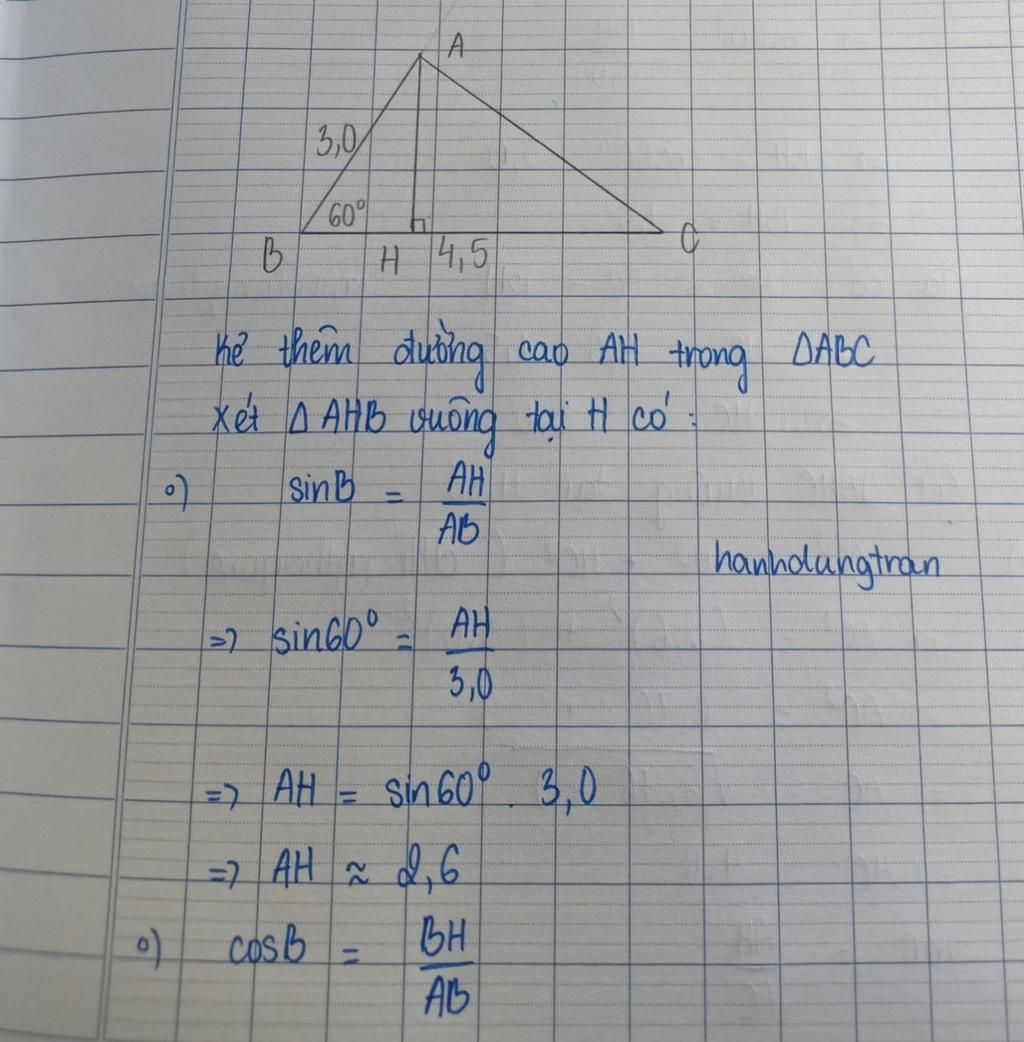 A
3,0
60°
B H 4,5 C
Kẻ thêm đường cao AH trong ΔABC
Xét ΔAHB vuông tại H có:
o) sinB = AH/AB
hanhdungtran
=> sin60° = AH/3,0
=> AH = sin60° . 3,0
=> AH ≈ 2,6
o) cosB = BH/AB